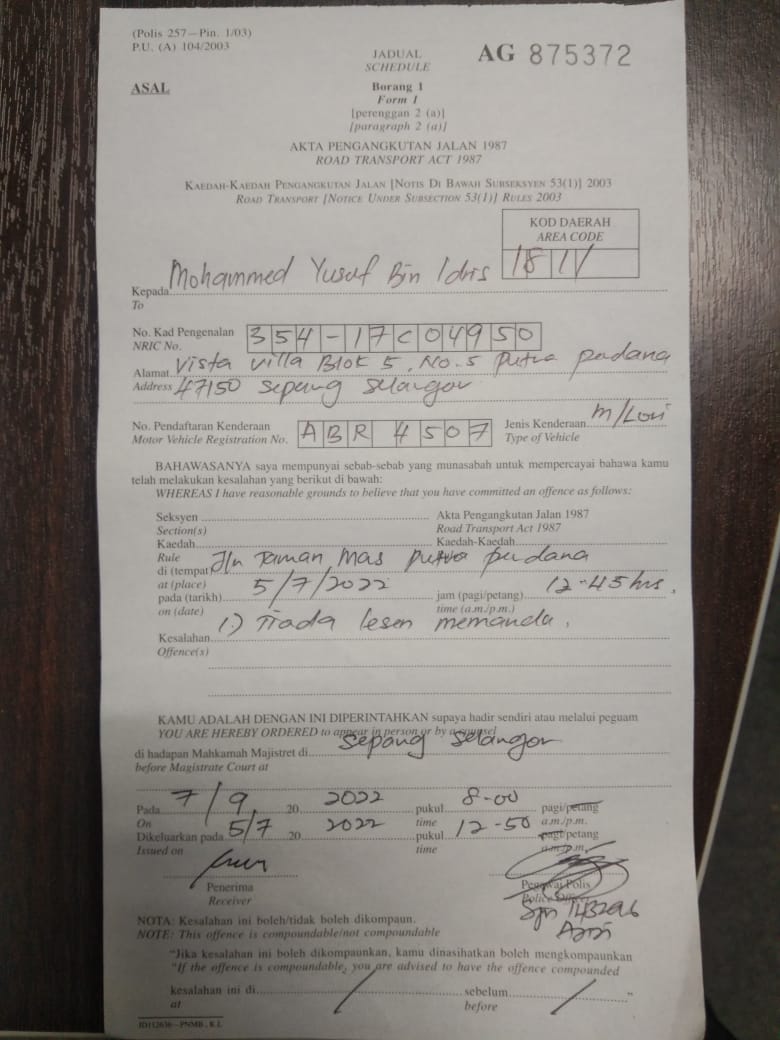 (Polis 257—Pin. 1/03)
P.U. (A) 104/2003
AG 875372
JADUAL
SCHEDULE
ASAL
Borang 1
Form 1
[perenggan 2 (a)]
[paragraph 2 (a)]
AKTA PENGANGKUTAN JALAN 1987
ROAD TRANSPORT ACT 1987
KAEDAH-KAEDAH PENGANGKUTAN JALAN [NOTIS DI BAWAH SUBSEKSYEN 53(1)] 2003
ROAD TRANSPORT [NOTICE UNDER SUBSECTION 53(1)] RULES 2003
KOD DAERAH
AREA CODE
18 11
Kepada Mohammed Yusuf Bin Idris
To
No. Kad Pengenalan
NRIC No. 354-17C04950
Alamat Vista Villa Blok 5, No. 5 Putra perdana
Address 47150 Sepang Selangor
No. Pendaftaran Kenderaan
Motor Vehicle Registration No. ABR 4507
Jenis Kenderaan m/Lori
Type of Vehicle
BAHAWASANYA saya mempunyai sebab-sebab yang munasabah untuk mempercayai bahawa kamu
telah melakukan kesalahan yang berikut di bawah:
WHEREAS I have reasonable grounds to believe that you have committed an offence as follows:
Seksyen Akta Pengangkutan Jalan 1987
Section(s) Road Transport Act 1987
Kaedah Kaedah-Kaedah
Rule
di (tempat) Jln Taman Mas Putra perdana
at (place)
pada (tarikh) 5/7/2022 jam (pagi/petang) 12-45 hrs.
on (date) time (a.m./p.m.)
Kesalahan 1.) Tiada lesen memandu.
Offence(s)
KAMU ADALAH DENGAN INI DIPERINTAHKAN supaya hadir sendiri atau melalui peguam
YOU ARE HEREBY ORDERED to appear in person or by a counsel
di hadapan Mahkamah Majistret di Sepang Selangor
before Magistrate Court at
Pada 7/9 20 2022 pukul 8-00 pagi/petang
On time a.m./p.m.
Dikeluarkan pada 5/7 20 2022 pukul 12-50 pagi/petang
Issued on time a.m./p.m.
Penerima
Receiver
Pegawai Polis
Police Officer
NOTA: Kesalahan ini boleh/tidak boleh dikompaun.
NOTE: This offence is compoundable/not compoundable
"Jika kesalahan ini boleh dikompaunkan, kamu dinasihatkan boleh mengkompaunkan
"If the offence is compoundable, you are advised to have the offence compounded
kesalahan ini di / sebelum / "
at before